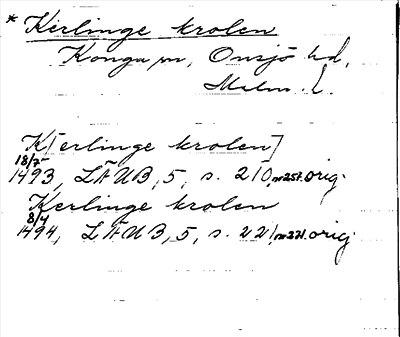 * Kerlinge krolen
Konga sn, Onsjö hd,
Malm. l.
K[erlinge krolen]
18/7
1493, LÄUB, 5, s. 210, nr 257. orig.
Kerlinge krolen
8/4
1494, LÄUB, 5, s. 221, nr 271. orig.